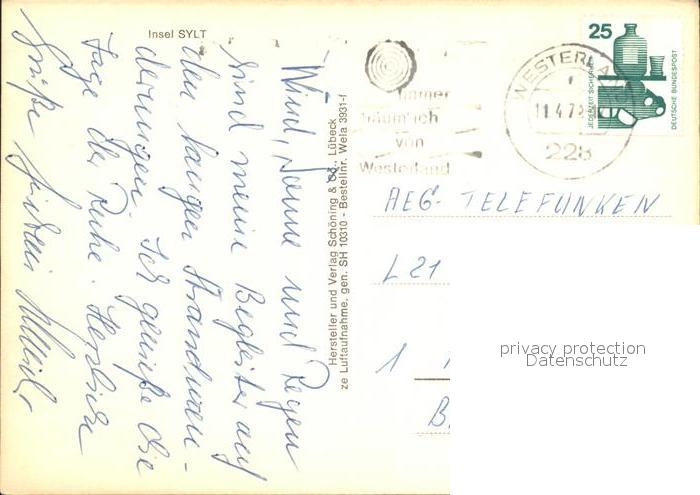 Insel SYLT
Wind, Sonne und Regen
sind meine Begleiter auf
den langen Strandwan-
derungen. Ich genieße die
Tage der Ruhe. Herzliche
Grüße
Hersteller und Verlag Schöning & Co., Lübeck
ze Luftaufnahme, gen. SH 10310 - Bestellnr. Wela 3931-f
immer
träum' ich
von
Westerland
WESTERLAND
11.4.7
228
25
JEDERZEIT SICHERHEIT
DEUTSCHE BUNDESPOST
AEG-TELEFUNKEN
L 21
1
B
privacy protection
Datenschutz